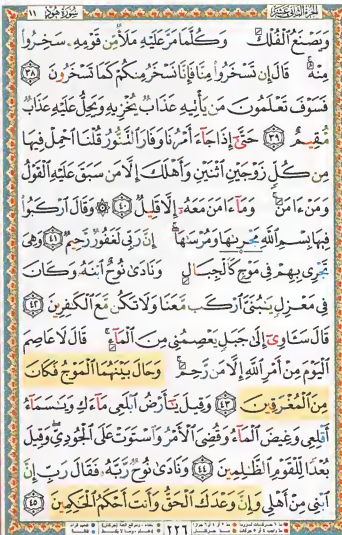 سورة هود ١١
وَيَصْنَعُ ٱلْفُلْكَ وَكُلَّمَا مَرَّ عَلَيْهِ مَلَأٌ مِّن قَوْمِهِۦ سَخِرُوا۟
مِنْهُ ۚ قَالَ إِن تَسْخَرُوا۟ مِنَّا فَإِنَّا نَسْخَرُ مِنكُمْ كَمَا تَسْخَرُونَ ٣٨
فَسَوْفَ تَعْلَمُونَ مَن يَأْتِيهِ عَذَابٌ يُخْزِيهِ وَيَحِلُّ عَلَيْهِ عَذَابٌ
مُّقِيمٌ ٣٩ حَتَّىٰٓ إِذَا جَآءَ أَمْرُنَا وَفَارَ ٱلتَّنُّورُ قُلْنَا ٱحْمِلْ فِيهَا
مِن كُلٍّ زَوْجَيْنِ ٱثْنَيْنِ وَأَهْلَكَ إِلَّا مَن سَبَقَ عَلَيْهِ ٱلْقَوْلُ
وَمَنْ ءَامَنَ ۚ وَمَآ ءَامَنَ مَعَهُۥٓ إِلَّا قَلِيلٌ ٤٠ ۞ وَقَالَ ٱرْكَبُوا۟
فِيهَا بِسْمِ ٱللَّهِ مَجْر۪ىٰهَا وَمُرْسَىٰهَآ ۚ إِنَّ رَبِّى لَغَفُورٌ رَّحِيمٌ ٤١ وَهِىَ
تَجْرِى بِهِمْ فِى مَوْجٍ كَٱلْجِبَالِ وَنَادَىٰ نُوحٌ ٱبْنَهُۥ وَكَانَ
فِى مَعْزِلٍ يَٰبُنَىَّ ٱرْكَب مَّعَنَا وَلَا تَكُن مَّعَ ٱلْكَٰفِرِينَ ٤٢
قَالَ سَـَٔاوِىٓ إِلَىٰ جَبَلٍ يَعْصِمُنِى مِنَ ٱلْمَآءِ ۚ قَالَ لَا عَاصِمَ
ٱلْيَوْمَ مِنْ أَمْرِ ٱللَّهِ إِلَّا مَن رَّحِمَ ۚ وَحَالَ بَيْنَهُمَا ٱلْمَوْجُ فَكَانَ
مِنَ ٱلْمُغْرَقِينَ ٤٣ وَقِيلَ يَٰٓأَرْضُ ٱبْلَعِى مَآءَكِ وَيَٰسَمَآءُ
أَقْلِعِى وَغِيضَ ٱلْمَآءُ وَقُضِىَ ٱلْأَمْرُ وَٱسْتَوَتْ عَلَى ٱلْجُودِىِّ ۖ وَقِيلَ
بُعْدًا لِّلْقَوْمِ ٱلظَّٰلِمِينَ ٤٤ وَنَادَىٰ نُوحٌ رَّبَّهُۥ فَقَالَ رَبِّ إِنَّ
ٱبْنِى مِنْ أَهْلِى وَإِنَّ وَعْدَكَ ٱلْحَقُّ وَأَنتَ أَحْكَمُ ٱلْحَٰكِمِينَ ٤٥
٢٢٦